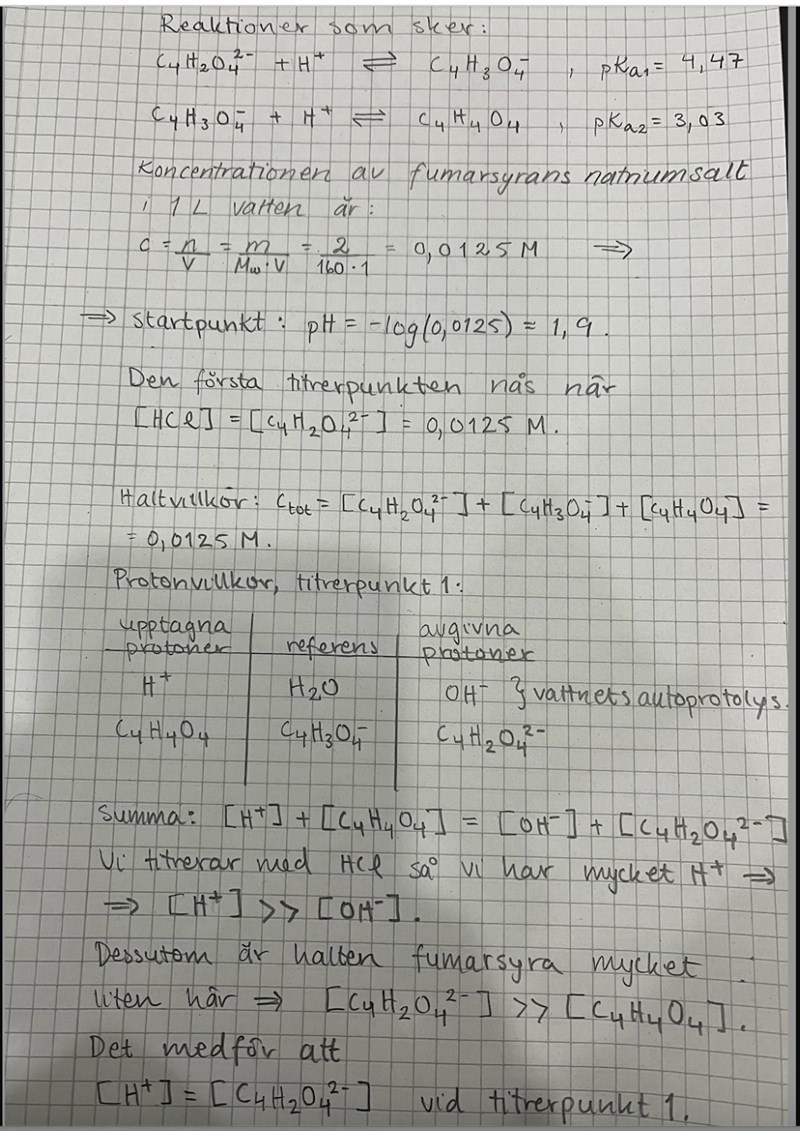 Reaktioner som sker:
C₄H₂O₄²⁻ + H⁺ ⇌ C₄H₃O₄⁻ , pKa1 = 4,47
C₄H₃O₄⁻ + H⁺ ⇌ C₄H₄O₄ , pKa2 = 3,03
Koncentrationen av fumarsyrans natriumsalt
i 1 L vatten är:
c = n/V = m/(Mw·V) = 2/(160·1) = 0,0125 M ⇒
⇒ startpunkt: pH = -log(0,0125) ≈ 1,9.
Den första titrerpunkten nås när
[HCl] = [C₄H₂O₄²⁻] = 0,0125 M.
Haltvillkor: Ctot = [C₄H₂O₄²⁻] + [C₄H₃O₄⁻] + [C₄H₄O₄] =
= 0,0125 M.
Protonvillkor, titrerpunkt 1:
upptagna protoner | referens | avgivna protoner
H⁺ | H₂O | OH⁻ } vattnets autoprotolys.
C₄H₄O₄ | C₄H₃O₄⁻ | C₄H₂O₄²⁻
Summa: [H⁺] + [C₄H₄O₄] = [OH⁻] + [C₄H₂O₄²⁻]
Vi titrerar med HCl så vi har mycket H⁺ ⇒
⇒ [H⁺] >> [OH⁻].
Dessutom är halten fumarsyra mycket
liten här ⇒ [C₄H₂O₄²⁻] >> [C₄H₄O₄].
Det medför att
[H⁺] = [C₄H₂O₄²⁻] vid titrerpunkt 1.